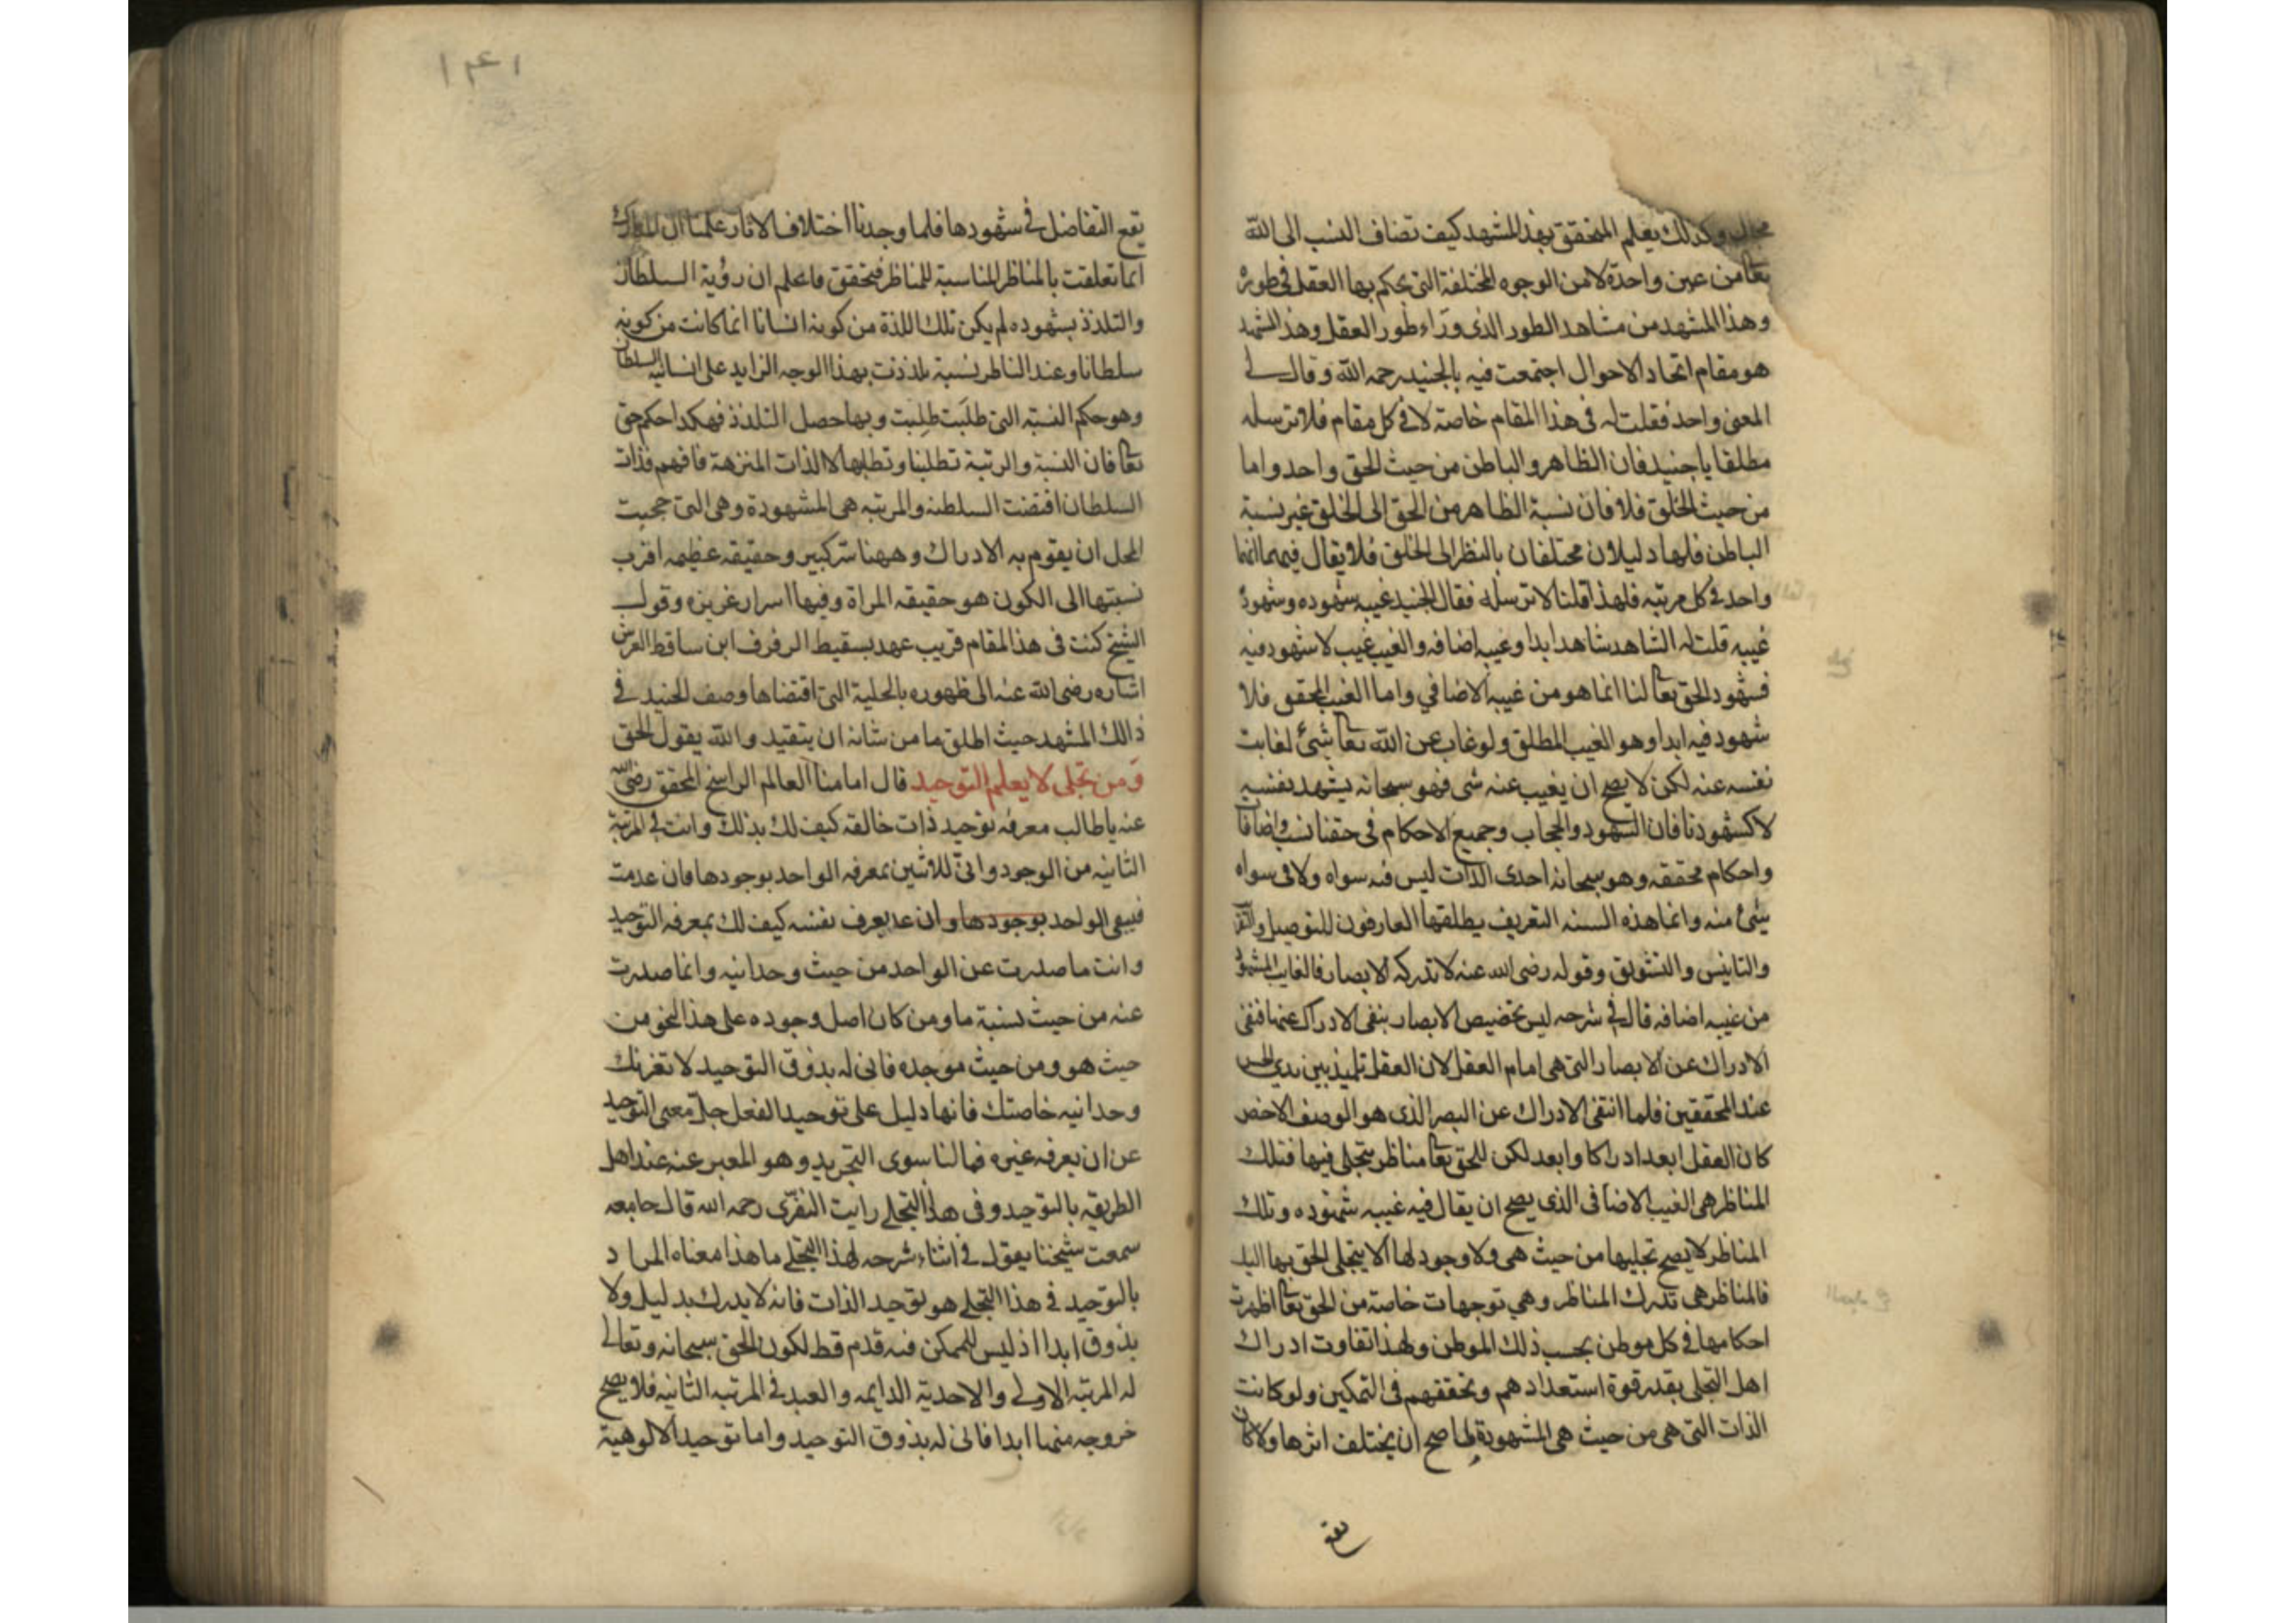 محال وكذلك يعلم المتحقق بهذا المشهد كيف تضاف النسب الى الله
تعا من عين واحدة لا من الوجوه المختلفة التي يحكم بها العقل في طوره
وهذا المشهد من مشاهد الطور الذي وراء طور العقل وهذا المشهد
هو مقام اتحاد الاحوال اجتمعت فيه بالجنيد رحمه الله وقال لي
المعنى واحد فقلت له في هذا المقام خاصة لا في كل مقام فلا ترسله
مطلقا يا جنيد فان الظاهر والباطن من حيث الحق واحد واما
من حيث الخلق فلا فان نسبة الظاهر من الحق الى الخلق غير نسبة
الباطن فلها دليلان مختلفان بالنظر الى الخلق فلا يقال فيهما انهما
واحد في كل مرتبه فلهذا قلنا لا ترسله فقال الجنيد غيبه شهوده وشهوده
غيبه قلت له الشاهد شاهد ابدا وغيبه اضافه والغيب غيب لا شهود فيه
فشهود الحق تعا لنا انما هو من غيبه الاضافي واما الغيب المحقق فلا
شهود فيه ابدا وهو الغيب المطلق ولو غاب عن الله تعا شئ لغابت
نفسه عنه لكن لا يصح ان يغيب عنه شى فهو سبحانه يشهد نفسه
لا كشهودنا فان الشهود والحجاب وجميع الاحكام في حقنا نسب واضافا
واحكام محققه وهو سبحانه احدى الذات ليس فيه سواه ولا في سواه
شئ منه وانما هذه السنه التعريف يطلقها العارفون للتوصيل
والتانيس والتشويق وقوله رضى الله عنه لا تدركه الابصار فالغايب المشهود
من غيبه اضافه قال في شرحه ليس تخصيص الابصار بنفى الادراك عنها فنفى
الادراك عن الابصار التي هي امام العقل لان العقل تلميذ بين يدي الحس
عند المحققين فلما انتفى الادراك عن البصر الذي هو الوصف الاخص
كان العقل ابعد ادراكا وابعد لكن للحق تعا مناظر يتجلى فيها فتلك
المناظر هي الغيب الاضافى الذي يصح ان يقال فيه غيبه شهوده وتلك
المناظر لا يصح تجليها من حيث هي ولا وجود لها الا بتجلى الحق بها اليك
فالمناظر هي تدرك المناظر وهي توجهات خاصة من الحق تعا اظهرت
احكامها في كل موطن بحسب ذلك الموطن ولهذا تفاوت ادراك
اهل التجلى بقدر قوة استعدادهم وتحققهم في التمكين ولو كانت
الذات التي هي من حيث هي المشهودة لما صح ان يختلف اثرها ولا كان
يقع
١٤١
يقع التفاضل في شهودها فلما وجدنا اختلاف الاثار علمنا ان المدارك
انما تعلقت بالمناظر المناسبة للمناظر فتحقق فاعلم ان رؤية السلطان
والتلذذ بشهوده لم يكن تلك اللذة من كونه انسانا انما كانت من كونه
سلطانا وعند الناظر نسبة تلذذت بهذا الوجه الزايد على انسانيه السلطان
وهو حكم النسبة التي طلبت طلبت وبها حصل التلذذ فهكذا حكم حق
تعا فان النسبة والرتبة تطلبنا وتطلبها لا الذات المنزهة فافهم فذات
السلطان اقتضت السلطنه والمرتبه هي المشهودة وهي التي حجبت
المحل ان يقوم به الادراك وههنا سر كبير وحقيقه عظيمه اقرب
نسبتها الى الكون هو حقيقه المراة وفيها اسرار عزيزه وقول
الشيخ كنت في هذا المقام قريب عهد بسقيط الرفرف ابن ساقط العرش
اشاره رضى الله عنه الى ظهوره بالحلية التي اقتضاها وصف الجنيد في
ذلك المشهد حيث اطلق ما من شانه ان يتقيد والله يقول الحق
ومن تجلى لا يعلم التوحيد قال امامنا العالم الراسخ المحقق رضى الله
عنه يا طالب معرفه توحيد ذات خالقه كيف لك بذلك وانت في المرتبة
الثانيه من الوجود وانى للاثنين بمعرفه الواحد بوجودها فان عدمت
فيبقى الواحد بوجودها وان عد يعرف نفسه كيف لك بمعرفه التوحيد
وانت ما صدرت عن الواحد من حيث وحدانيه وانما صدرت
عنه من حيث نسبة ما ومن كان اصل وجوده على هذا النحو من
حيث هو ومن حيث موجده فانى له بذوق التوحيد لا تغرنك
وحدانيه خاصتك فانها دليل على توحيد الفعل جل معنى التوحيد
عن ان يعرفه غيره فما لنا سوى التجريد وهو المعبر عنه عند اهل
الطريقه بالتوحيد وفي هذا التجلي رايت النفري رحمه الله قال جامعه
سمعت شيخنا يقول في اثناء شرحه لهذا التجلي ما هذا معناه المراد
بالتوحيد في هذا التجلي هو توحيد الذات فانه لا يدرك بدليل ولا
بذوق ابدا اذ ليس للممكن فيه قدم قط لكون الحق سبحانه وتعالى
له المرتبه الاولى والاحدية الدايمه والعبد في المرتبه الثانيه فلا يصح
خروجه منها ابدا فانى له بذوق التوحيد واما توحيد الالوهية